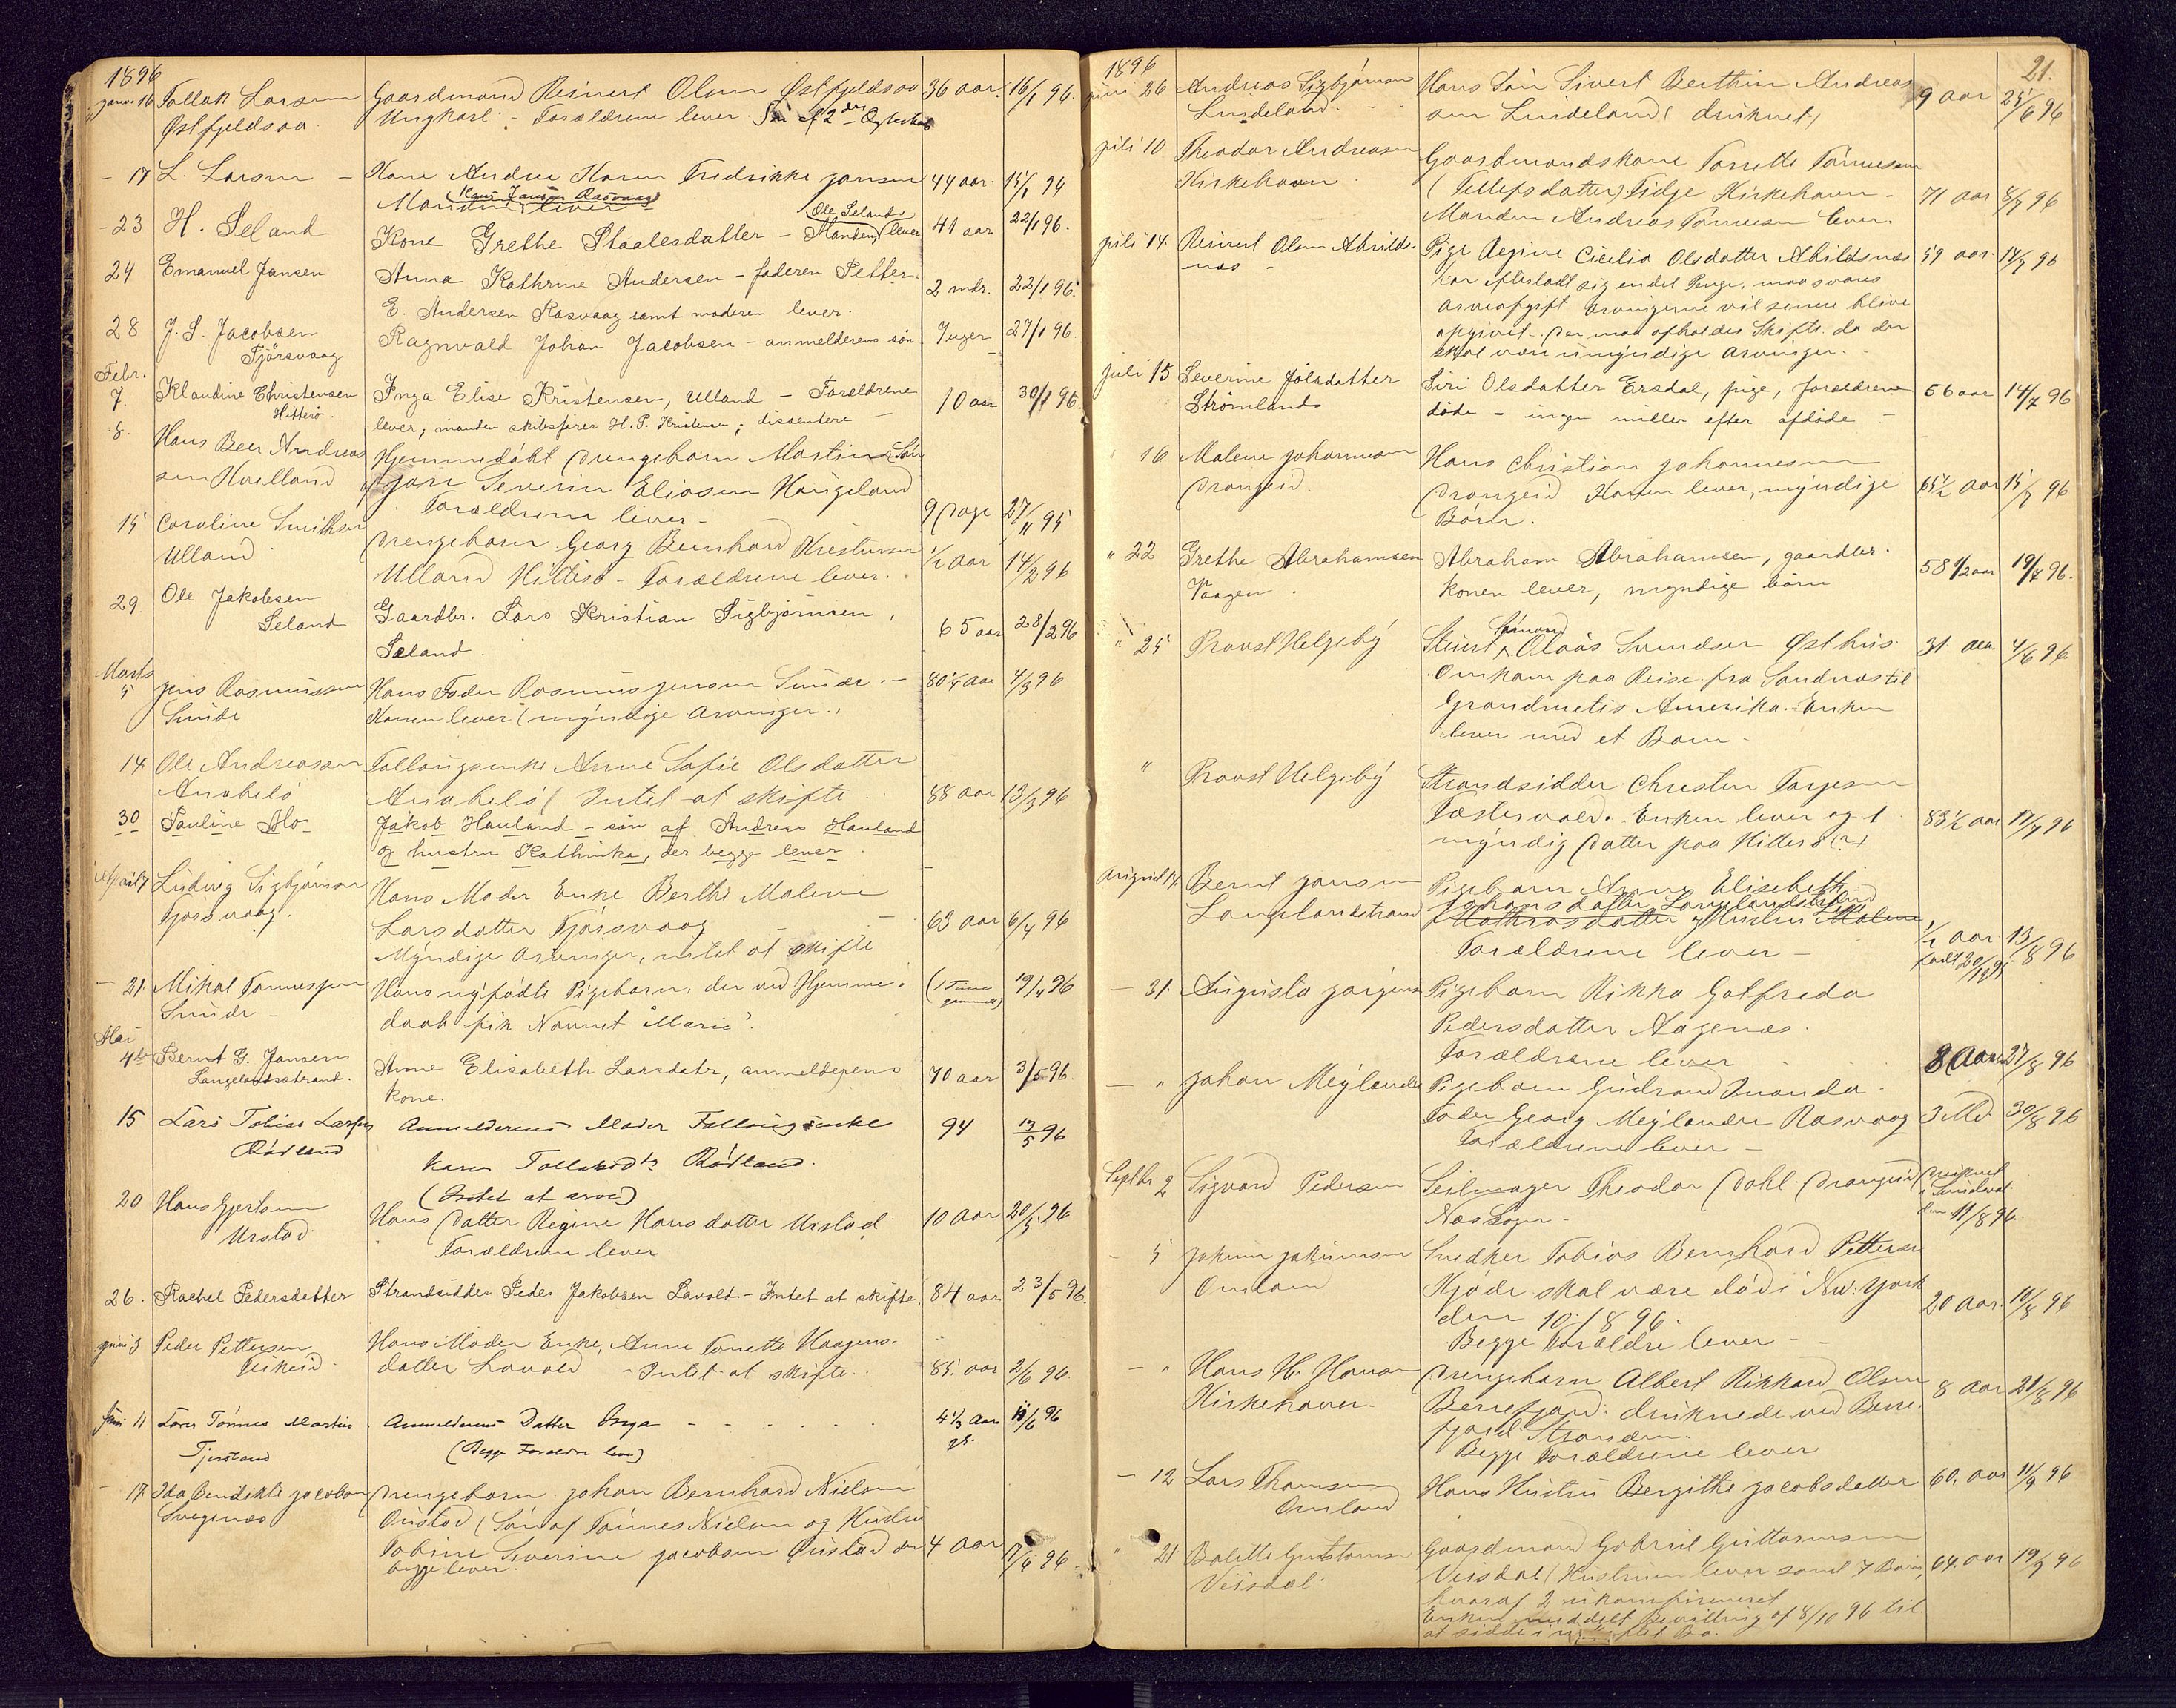 1896
Januar 16 Tollak Larsen Gaardmand Reinert Olsen Østfjeldsaa 36 aar. 16/1 96.
Østfjeldsaa. Ungkarl - Forældrene lever. Søn af 2den Ægteskab
- 17 L. Larsen - Kone Andrea Karen Fredrikke Jansen 44 aar. 15/1 96
Manden (Hans Jansen Rasvaag) lever
- 23 H. Seland Kone Grethe Staalesdatter - Manden (Ole Seland) lever 41 aar 22/1 96.
24 Emanuel Jansen Anna Kathrine Andersen - faderen Petter 2 mdr. 22/1 96.
E. Andersen Rasvaag samt moderen lever.
28 J. S. Jacobsen Ragnvald Johan Jacobsen - anmelderens søn 7 uger 27/1 96
Fjørsvaag
Febr.
7. Klaudine Christensen Inga Elise Kristensen, Ulland - Forældrene 10 aar 30/1 96
Hitterø. lever, manden skibsfører H. P. Kristensen; dissentere
8. Hans Beer Andreas Hjemmedøbt Drengebarn Martin Søn
sen Hvelland af Jan Severin Eliasen Haugeland
Forældrene lever - 9 Dage 27/11 95
15 Caroline Smithsen Drengebarn Georg Bernhard Kristensen
Ulland Ulland Hitterø - Forældrene lever. 1/2 aar 14/2 96
29 Ole Jakobsen Gaardbr. Lars Kristian Sigbjørnsen, 65 aar 28/2 96
Seland Sæland.
Marts
5 Jens Rasmussen Hans Fader Rasmus Jensen Sunde. - 80 1/4 aar 4/3 96
Sunde Konen lever (myndige Arvinger.,
14 Ole Andreassen Follaugsenke Anne Sofie Olsdatter
Anabelø Anabelø (Intet at skifte 88 aar 13/3 96
30 Pauline Mo Jakob Hauland - søn af Andreas Hauland
og hustru Kathinka, der begge lever.
April 7 Ludvig Sigbjørnsen Hans Moder Enke Berthe Malene
Fjørsvaag. Larsdatter Fjørsvaag - 63 aar 6/4 96
Myndige Arvinger, intet at skifte
- 21. Mikal Tønnesen Hans nyfødte Pigebarn, der ved Hjemme- (1 Time gammel) 19/4 96
Sunde - daab fik Navnet "Marie".
Mai
4de Bernt G. Jansen Anne Elisabeth Larsdatr, anmelderens 70 aar 3/5 96.
Langelandsstrand. kone
15 Lars Tobias Larsen Anmelderens Moder Follougsenke 94 13/5 96
Rødland Karen Tollaksdtr Rødland.
(Intet at arve)
20 Hans Gjertsen Hans Datter Regine Hansdatter Urstad 10 Aar 20/5 96
Urstad Forældrene lever.
26. Rachel Pedersdatter Strandsidder Peder Jakobsen Lavold - Intet at skifte. 84 aar 23/5 96.
Juni 3 Peder Pettersen Hans Moder Enke, Anne Tonette Haagens-
datter Lavold - Intet at skifte. 85. aar 2/6 96.
Juni 11 Lars Tønnes Martin Anmelderens Datter Inga - - - - - 4 1/3 Aar 11/6 96
Tjersland (Begge Forældre lever) gl.
- 17 Ida Bendikte Jacobsen Drengebarn Johan Bernhard Nielsen
Svegenæs Øristad (Søn af Tønnes Nielsen og Hustru
Tobine Severine Jacobsen Øristad der 4 Aar 17/6 96
begge lever.
1896 21.
Juni 26 Andreas Sigbjørnsen Hans Søn Sivert Berthin Andreas 9 aar 25/6 96
Lindeland. sen Lindeland (druknet)
juli 10 Theodor Andreasen Gaardmandskone Tonette Tønnesen
Kirkehavn (Tellefsdatter) Fidje Kirkehavn - 71 aar 8/7 96
Manden Andreas Tønnesen lever.
juli 14. Reinert Olsen Abilds- Pige Regine Cicilia Olsdatter Abildsnæs 59 aar. 14/7 96
næs - har efterladt sig endel Penge, maa svares
Arveafgift Arvingerne vil senere blive
opgivet. Der maa afholdes Skifte. da der
skal være umyndige Arvinger. -
juli 15 Severine Joelsdatter Siri Olsdatter Ersdal, pige, forældrene 56 aar 14/7 96
Strømland døde - ingen midler efter afdøde -
" 16 Malene Johannesen Hans Christian Johannesen
Drangeid. Drangeid Konen lever, myndige 65 1/2 Aar 15/7 96
Børn.
" 22 Grethe Abrahamsen Abraham Abrahamsen, gaardbr. 58 1/2 aar 19/7 96.
Vaagen. konen lever, myndige børn
" 25 Provst Helgeby Steuert (Sømand) Olaus Svendsen Østhus. 31. aar 4/6 96
Omkom paa Reise fra Sandnæs til
Grandmetis Amerika. - Enken
lever med et Barn -
" Provst Helgeby Strandsidder Christen Torjesen
Fæstervold. Enken lever og 1 83 1/2 aar 17/7 96
myndig Datter paa Hitterø
August 14. Bernt Jansen Pigebarn Anna Elisebeth
Langelandstrand Johansdatter Langelandstrand
Mathiasdatter af Hustru Malene 1/2 aar 13/8 96
Forældrene lever - født 20/12 95.
- 31. Augusta Jørgensen Pigebarn Rikka Gotfreda
Pedersdatter Aagenæs.
Forældrene lever - 8 Aar 27/8 96
- " Johan Meylænder Pigebarn Gudrand Inanda.
Fader Georg Meylændre Rasvaag 3 Md. 30/8 96
Forældrene lever -
Septbr 2 Sigvard Pedersen Seilmager Theodor Dahl. Drangeid Druknet
Næs Sogn - i Sundsval
den 11/8 96.
- 5 Jakum Jakumsen Snedker Tobias Bernhard Pettersen
Omland Kjøde skal være død i New: York 20 Aar. 10/8 96
den 10/8 96.
Begge Forældre lever -
- " Hans H. Hansen Drengebarn Albert Rikkard Olsen 8 Aar 21/8 96
Kirkehavn. Berrefjord. druknede ved Berre-
fjord Stranden.
Begge Forældrene lever
- 12 Lars Thomsen Hans Hustru Bergithe Jacobsdatter 60. aar 11/9 96
Omland
" 21 Balette Guttormsen Gaardmand Gabriel Guttormsen
Veisdal. Veisdal (Hustruen lever samt 7 Børn, 64. aar 19/9 96
hvoraf 2 ukonfirmeret
Enken meddelt Bevilling af 8/10 96 til
at sidde i uskiftet Bo.